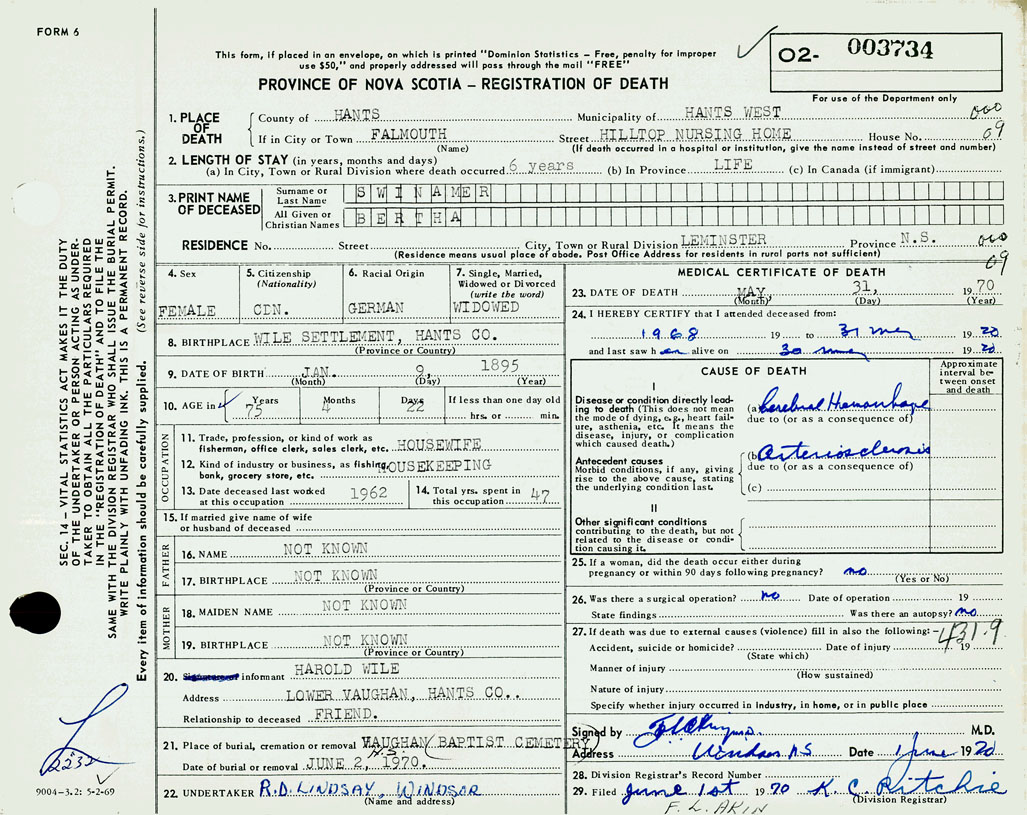 FORM 6
This form, if placed in an envelope, on which is printed "Dominion Statistics – Free, penalty for improper
use $50," and properly addressed will pass through the mail "FREE"
PROVINCE OF NOVA SCOTIA – REGISTRATION OF DEATH
02- 003734
For use of the Department only
1. PLACE OF DEATH
County of HANTS Municipality of HANTS WEST 000
If in City or Town FALMOUTH Street HILLTOP NURSING HOME House No. 09
(Name) (If death occurred in a hospital or institution, give the name instead of street and number)
2. LENGTH OF STAY (in years, months and days)
(a) In City, Town or Rural Division where death occurred 6 years (b) In Province LIFE (c) In Canada (if immigrant)
3. PRINT NAME OF DECEASED
Surname or Last Name SWINAMER
All Given or Christian Names BERTHA
RESIDENCE No. Street City, Town or Rural Division LEMINSTER Province N.S. 000
(Residence means usual place of abode. Post Office Address for residents in rural parts not sufficient) 09
4. Sex
FEMALE
5. Citizenship
(Nationality)
CDN.
6. Racial Origin
GERMAN
7. Single, Married,
Widowed or Divorced
(write the word)
WIDOWED
8. BIRTHPLACE WILE SETTLEMENT, HANTS CO.
(Province or Country)
9. DATE OF BIRTH JAN. 9, 1895
(Month) (Day) (Year)
10. AGE in Years Months Days If less than one day old
75 4 22 hrs. or min.
OCCUPATION
11. Trade, profession, or kind of work as
fisherman, office clerk, sales clerk, etc. HOUSEWIFE
12. Kind of industry or business, as fishing, HOUSEKEEPING
bank, grocery store, etc.
13. Date deceased last worked
at this occupation 1962
14. Total yrs. spent in
this occupation 47
15. If married give name of wife
or husband of deceased
FATHER
16. NAME NOT KNOWN
17. BIRTHPLACE NOT KNOWN
(Province or Country)
MOTHER
18. MAIDEN NAME NOT KNOWN
19. BIRTHPLACE NOT KNOWN
(Province or Country)
20. informant HAROLD WILE
Address LOWER VAUGHAN, HANTS CO..
Relationship to deceased FRIEND.
21. Place of burial, cremation or removal VAUGHAN (BAPTIST CEMETERY)
Date of burial or removal JUNE 2, 1970.
22. UNDERTAKER R.D. LINDSAY, WINDSOR
(Name and address)
MEDICAL CERTIFICATE OF DEATH
23. DATE OF DEATH MAY, 31, 1970
(Month) (Day) (Year)
24. I HEREBY CERTIFY that I attended deceased from:
1968 19 to 31 may 1970
and last saw her alive on 30 may 1970
CAUSE OF DEATH
Approximate
interval be-
tween onset
and death
I
Disease or condition directly lead-
ing to death (This does not mean
the mode of dying, e.g., heart fail-
ure, asthenia, etc. It means the
disease, injury, or complication
which caused death.)
(a) Cerebral Hemorrhage
due to (or as a consequence of)
Antecedent causes
Morbid conditions, if any, giving
rise to the above cause, stating
the underlying condition last.
(b) Arteriosclerosis
due to (or as a consequence of)
(c)
II
Other significant conditions
contributing to the death, but not
related to the disease or condi-
tion causing it.
25. If a woman, did the death occur either during
pregnancy or within 90 days following pregnancy? no
(Yes or No)
26. Was there a surgical operation? no Date of operation 19
State findings Was there an autopsy? no
27. If death was due to external causes (violence) fill in also the following: 431.9
Accident, suicide or homicide? Date of injury 19
(State which)
Manner of injury
(How sustained)
Nature of injury
Specify whether injury occurred in Industry, in home, or in public place
Signed by M.D.
Address Windsor N.S Date 1 June 1970
28. Division Registrar's Record Number
29. Filed June 1st 1970 K. C. Ritchie
(Division Registrar)
F. L. AKIN
SEC. 14 – VITAL STATISTICS ACT MAKES IT THE DUTY
OF THE UNDERTAKER OR PERSON ACTING AS UNDER-
TAKER TO OBTAIN ALL THE PARTICULARS REQUIRED
IN THE "REGISTRATION OF DEATH" AND TO FILE THE
SAME WITH THE DIVISION REGISTRAR WHO SHALL ISSUE THE BURIAL PERMIT.
WRITE PLAINLY WITH UNFADING INK. THIS IS A PERMANENT RECORD.
Every item of information should be carefully supplied. (See reverse side for instructions.)
2232
9004-3.2: 5-2-69